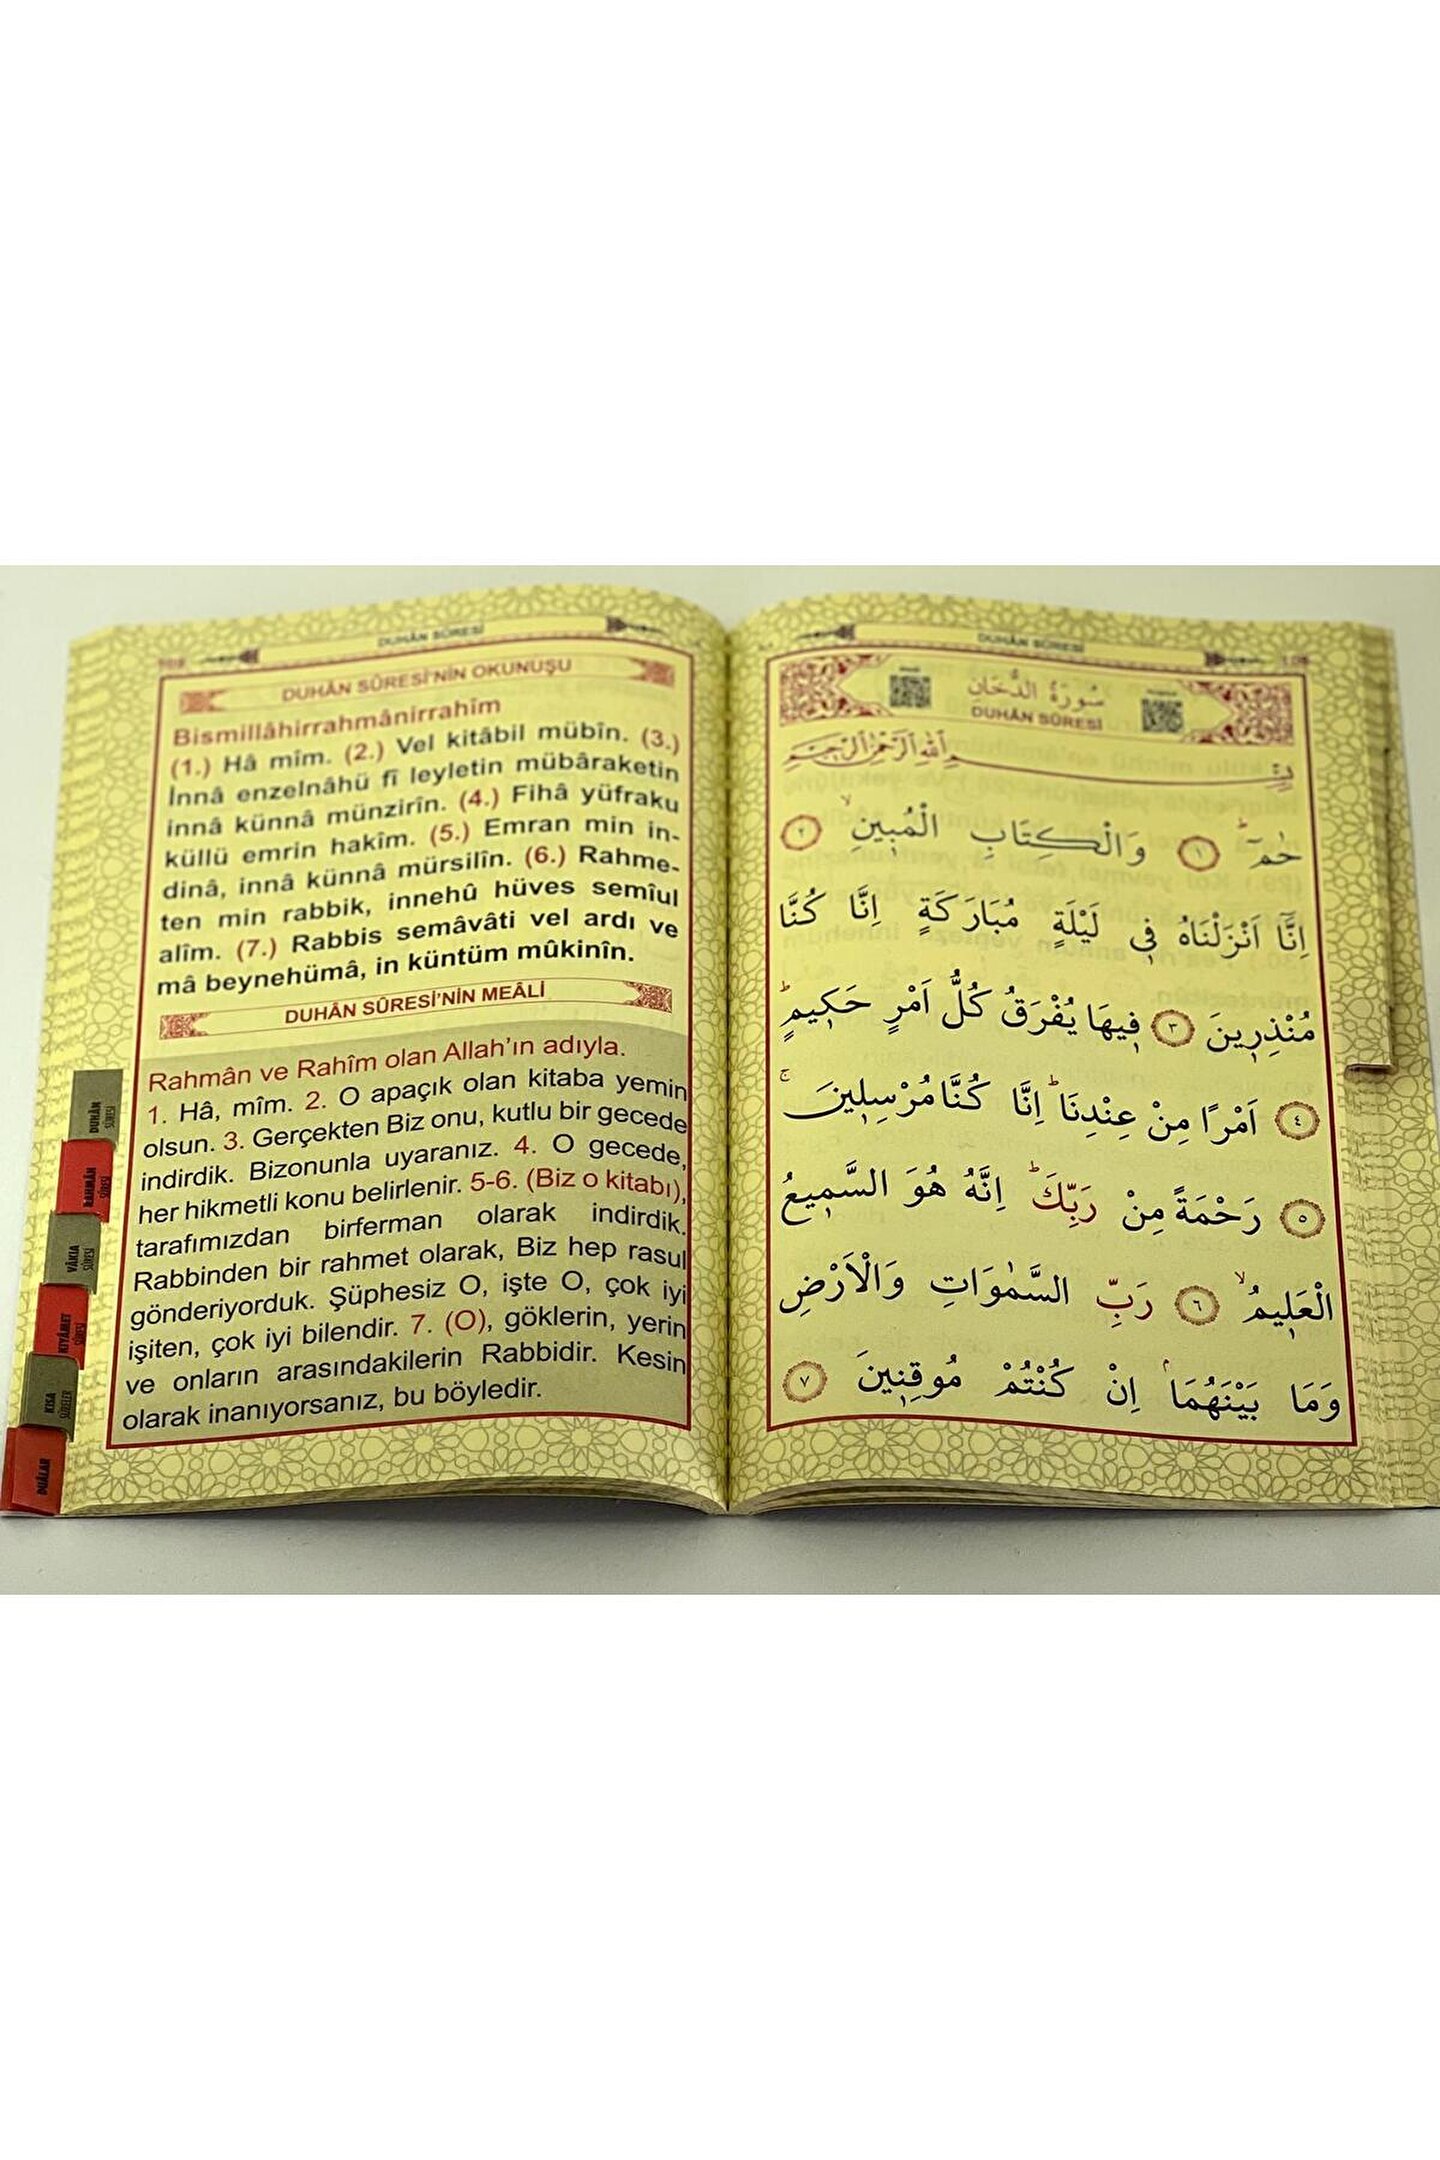 DUHÂN SÛRESİ
DUHÂN SÛRESİ'NİN OKUNUŞU
Bismillâhirrahmânirrahîm
(1.) Hâ mîm. (2.) Vel kitâbil mübîn. (3.)
İnnâ enzelnâhü fî leyletin mübâraketin
innâ künnâ münzirîn. (4.) Fihâ yüfraku
küllü emrin hakîm. (5.) Emran min in-
dinâ, innâ künnâ mürsilîn. (6.) Rahme-
ten min rabbik, innehû hüves semîul
alîm. (7.) Rabbis semâvâti vel ardı ve
mâ beynehümâ, in küntüm mûkinîn.
DUHÂN SÛRESİ'NİN MEÂLİ
Rahmân ve Rahîm olan Allah'ın adıyla.
1. Hâ, mîm. 2. O apaçık olan kitaba yemin
olsun. 3. Gerçekten Biz onu, kutlu bir gecede
indirdik. Bizonunla uyaranız. 4. O gecede,
her hikmetli konu belirlenir. 5-6. (Biz o kitabı),
tarafımızdan birferman olarak indirdik.
Rabbinden bir rahmet olarak, Biz hep rasul
gönderiyorduk. Şüphesiz O, işte O, çok iyi
işiten, çok iyi bilendir. 7. (O), göklerin, yerin
ve onların arasındakilerin Rabbidir. Kesin
olarak inanıyorsanız, bu böyledir.
DUHÂN
SÛRESİ
RAHMÂN
SÛRESİ
VÂKIA
SÛRESİ
KIYÂMET
SÛRESİ
KISA
SÛRELER
DUÂLAR
DUHÂN SÛRESİ
سُورَةُ الدُّخَانِ
DUHÂN SÛRESİ
بِسْمِ اللهِ الرَّحْمٰنِ الرَّحِيمِ
حٰمٓ ۜ ﴿١﴾ وَالْكِتَابِ الْمُبِينِ ۙ ﴿٢﴾
اِنَّٓا اَنْزَلْنَاهُ فِي لَيْلَةٍ مُبَارَكَةٍ اِنَّا كُنَّا
مُنْذِرِينَ ﴿٣﴾ فِيهَا يُفْرَقُ كُلُّ اَمْرٍ حَكِيمٍ ۜ
﴿٤﴾ اَمْرًا مِنْ عِنْدِنَا ۜ اِنَّا كُنَّا مُرْسِلِينَ ۚ
﴿٥﴾ رَحْمَةً مِنْ رَبِّكَ ۜ اِنَّهُ هُوَ السَّمِيعُ
الْعَلِيمُ ۙ ﴿٦﴾ رَبِّ السَّمٰوَاتِ وَالْاَرْضِ
وَمَا بَيْنَهُمَا ۢ اِنْ كُنْتُمْ مُوقِنِينَ ﴿٧﴾